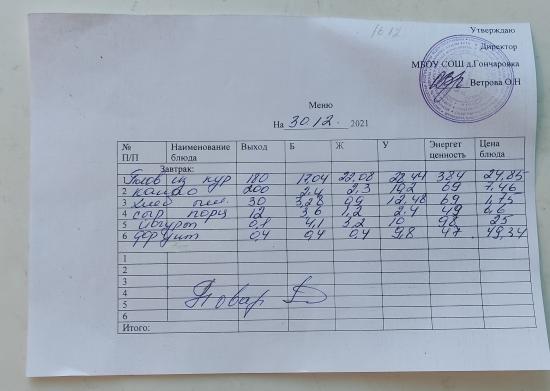 1612
Утверждаю
Директор
МБОУ СОШ д.Гончаровка
Ветрова О.Н
Меню
На 30 12. 2021
№ П/П Наименование блюда Выход Б Ж У Энергет ценность Цена блюда
Завтрак:
1 Плов из кур 180 17,04 22,08 22,44 384 24,85
2 какао 200 2,4 2,3 192 69 7,46
3 Хлеб пш. 30 3,28 12,48 69 1,75
4 сыр порц 12 3,6 1,2 2,4 49 6,6
5 йогурт 0,1 4,1 3,2 10 98 25
6 фрукт 0,4 0,4 0,4 9,8 47 49,34
1
2
3
4
5
6
Повар
Итого: